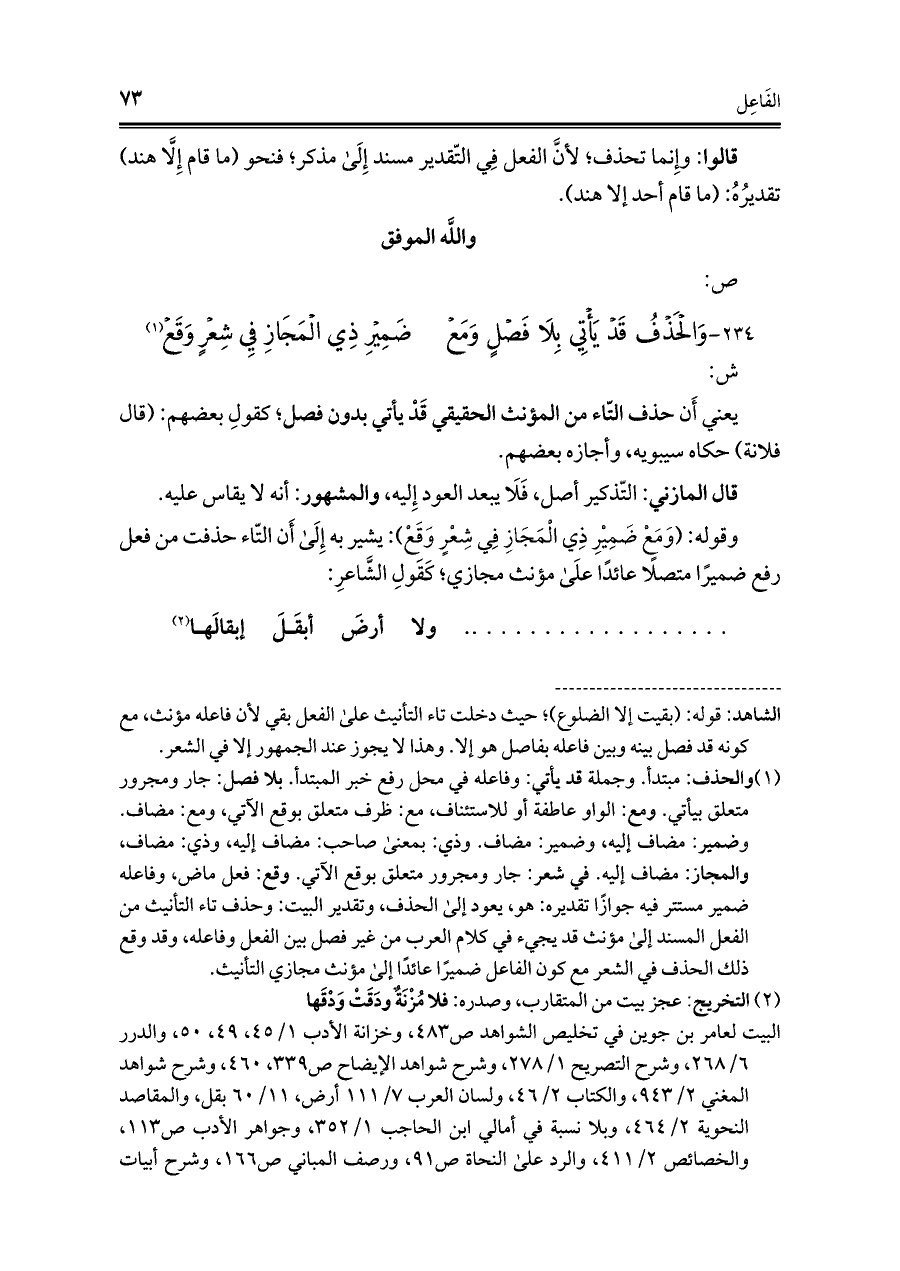 الفَاعِل
٧٣
قالوا: وإِنما تحذف؛ لأنَّ الفعل فِي التّقدير مسند إِلَىٰ مذكر؛ فنحو (ما قام إِلَّا هند)
تقديرُهُ: (ما قام أحد إلا هند).
واللَّه الموفق
ص:
٢٣٤-وَالْحَذْفُ قَدْ يَأْتِي بِلَا فَصْلٍ وَمَعْ ضَمِيْرِ ذِي الْمَجَازِ فِي شِعْرٍ وَقَعْ(١)
ش:
يعني أَن حذف التّاء من المؤنث الحقيقي قَدْ يأتي بدون فصل؛ كقولِ بعضهم: (قال
فلانة) حكاه سيبويه، وأجازه بعضهم.
قال المازني: التّذكير أصل، فَلَا يبعد العود إِليه، والمشهور: أنه لا يقاس عليه.
وقوله: (وَمَعْ ضَمِيْرِ ذِي الْمَجَازِ فِي شِعْرٍ وَقَعْ): يشير به إِلَىٰ أَن التّاء حذفت من فعل
رفع ضميرًا متصلًا عائدًا علَىٰ مؤنث مجازي؛ كَقَولِ الشَّاعرِ:
. . . . . . . . . . . . . . . . . . .. ولا أرضَ أبقَـلَ إبقالَهـا(٢)
الشاهد: قوله: (بقيت إلا الضلوع)؛ حيث دخلت تاء التأنيث علىٰ الفعل بقي لأن فاعله مؤنث، مع
كونه قد فصل بينه وبين فاعله بفاصل هو إلا. وهذا لا يجوز عند الجمهور إلا في الشعر.
(١)والحذف: مبتدأ. وجملة قد يأتي: وفاعله في محل رفع خبر المبتدأ. بلا فصل: جار ومجرور
متعلق بيأتي. ومع: الواو عاطفة أو للاستئناف، مع: ظرف متعلق بوقع الآتي، ومع: مضاف.
وضمير: مضاف إليه، وضمير: مضاف. وذي: بمعنىٰ صاحب: مضاف إليه، وذي: مضاف،
والمجاز: مضاف إليه. في شعر: جار ومجرور متعلق بوقع الآتي. وقع: فعل ماض، وفاعله
ضمير مستتر فيه جوازًا تقديره: هو، يعود إلىٰ الحذف، وتقدير البيت: وحذف تاء التأنيث من
الفعل المسند إلىٰ مؤنث قد يجيء في كلام العرب من غير فصل بين الفعل وفاعله، وقد وقع
ذلك الحذف في الشعر مع كون الفاعل ضميرًا عائدًا إلىٰ مؤنث مجازي التأنيث.
(٢) التخريج: عجز بيت من المتقارب، وصدره: فلا مُزْنَةٌ ودَقَتْ وَدْقَها
البيت لعامر بن جوين في تخليص الشواهد ص٤٨٣، وخزانة الأدب ١/ ٤٥، ٤٩، ٥٠، والدرر
٦/ ٢٦٨، وشرح التصريح ١/ ٢٧٨، وشرح شواهد الإيضاح ص٣٣٩، ٤٦٠، وشرح شواهد
المغني ٢/ ٩٤٣، والكتاب ٢/ ٤٦، ولسان العرب ٧/ ١١١ أرض، ١١/ ٦٠ بقل، والمقاصد
النحوية ٢/ ٤٦٤، وبلا نسبة في أمالي ابن الحاجب ١/ ٣٥٢، وجواهر الأدب ص١١٣،
والخصائص ٢/ ٤١١، والرد علىٰ النحاة ص٩١، ورصف المباني ص١٦٦، وشرح أبيات